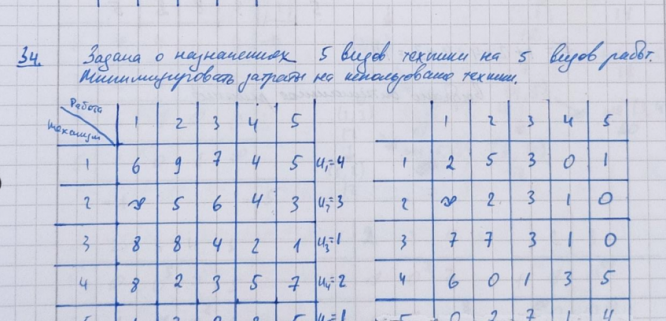 34. Задача о назначениях 5 видов техники на 5 видов работ.
Минимизировать затраты на использование техники.
Работа
Механизм
1 2 3 4 5
1 6 9 7 4 5 u₁=4
2 ∞ 5 6 4 3 u₂=3
3 8 8 4 2 1 u₃=1
4 8 2 3 5 7 u₄=2
1 2 3 4 5
1 2 5 3 0 1
2 ∞ 2 3 1 0
3 7 7 3 1 0
4 6 0 1 3 5
5 0 2 7 1 4